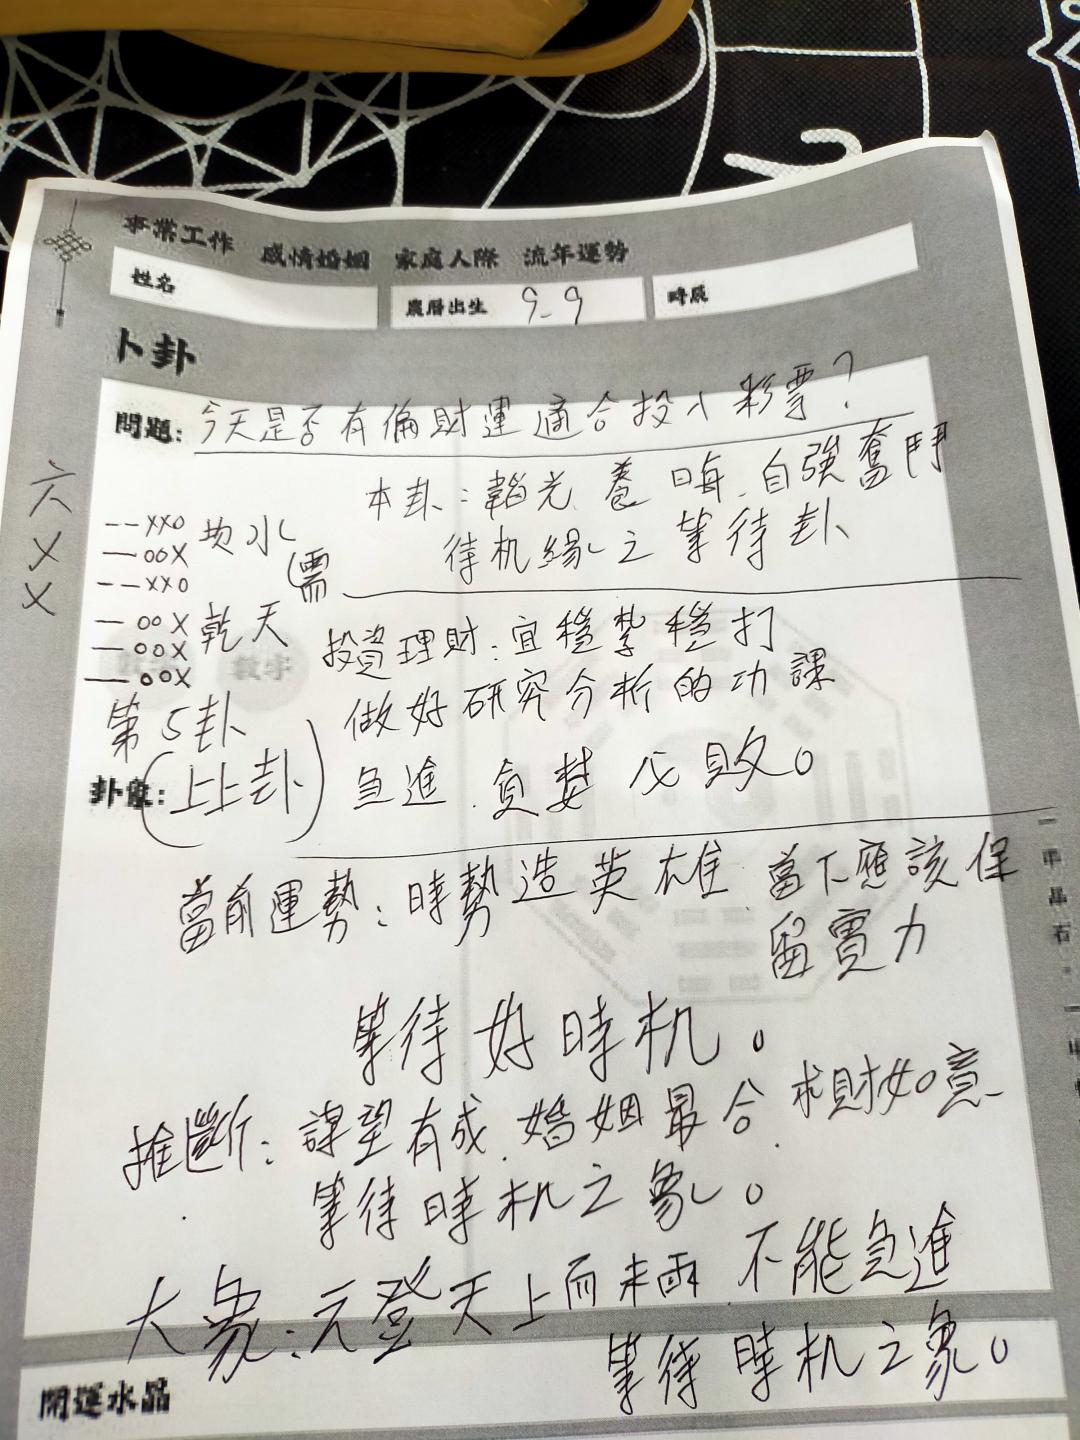 事業工作 感情婚姻 家庭人際 流年運勢
姓名
農曆出生 9-9
時辰
卜卦
問題: 今天是否有偏財運適合投入彩票?
六
X
X
-- XXO
— OOX
-- XXO
— OOX
— OOX
— OOX
坎水
乾天
(需
第5卦
卦象: (上上卦)
本卦:韜光養晦.自強奮鬥
待机緣之等待卦
投資理財:宜穩紮穩打
做好研究分析的功課
急進.貪婪必敗。
當前運勢:時勢造英雄 當下應該保
留實力
等待好時机。
推斷:謀望有成.婚姻最合.求財如意
等待時机之象。
大象:元登天上而未雨.不能急進
等待時机之象。
開運水晶